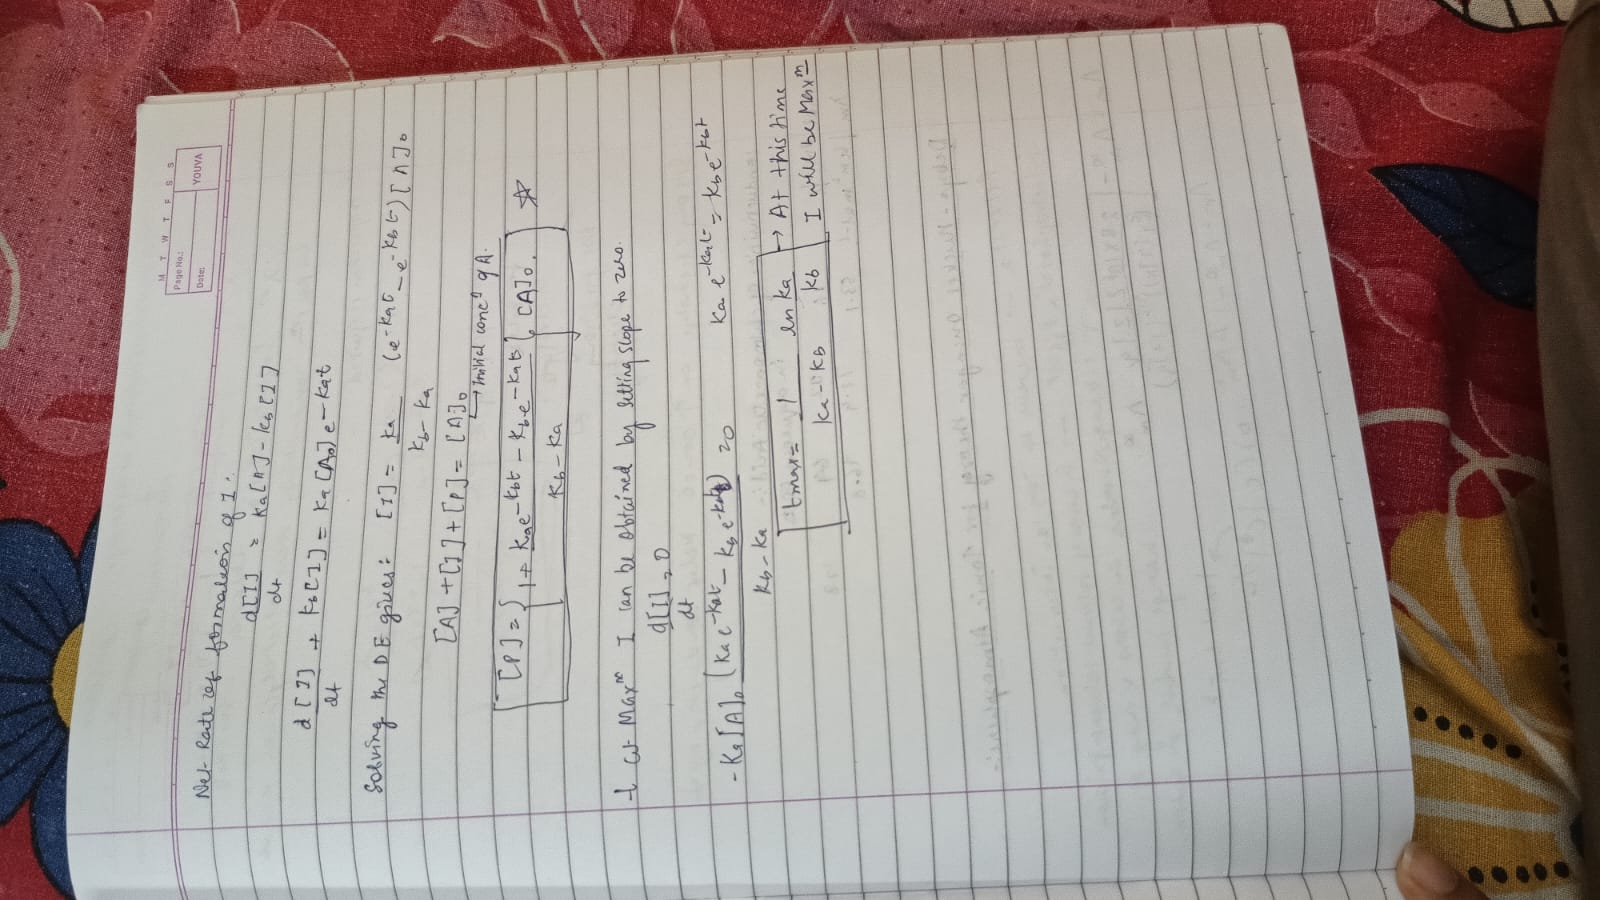 M T W T F S S
Page No.:
Date:
YOUVA
Net Rate of formation of I:
d[I]/dt = ka[A] - kb[I]
d[I]/dt + kb[I] = ka[A0] e^-kat
Solving the DE gives: [I] = ka/(kb - ka) (e^-kat - e^-kbt)[A]0
[A] + [I] + [P] = [A]0
→ Initial concn of A.
[P] = { 1 + (ka e^-kbt - kb e^-kat)/(kb - ka) } [A]0. ☆
t at Maxm I can be obtained by setting slope to zero.
d[I]/dt = 0
-ka[A]0 (ka e^-kat - kb e^-kbt)/(kb - ka) = 0 ka e^-kat = kb e^-kbt
tmax = 1/(ka - kb) ln ka/kb → At this time
I will be Maxm